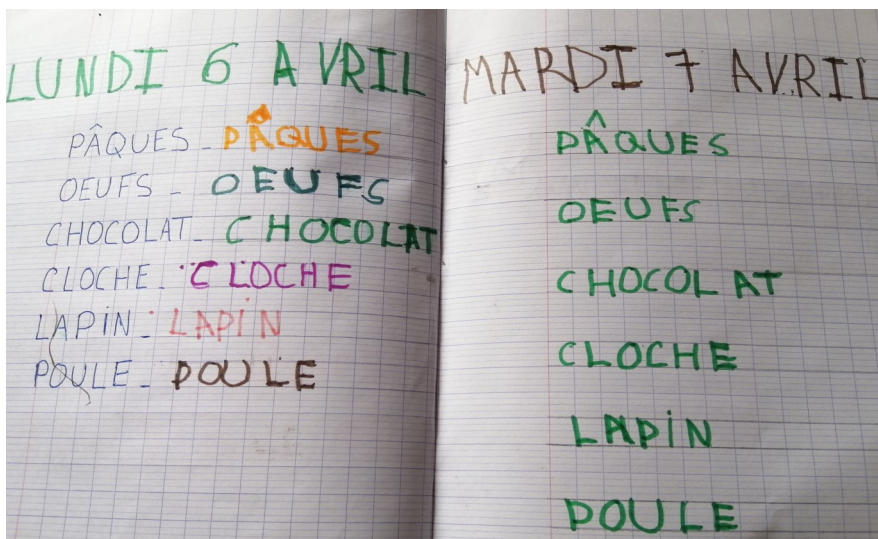 LUNDI 6 AVRIL
PÂQUES - PÂQUES
OEUFS - OEUFS
CHOCOLAT - CHOCOLAT
CLOCHE - CLOCHE
LAPiN - LAPiN
POULE - POULE
MARDI 7 AVRIL
PÂQUES
OEUFS
CHOCOLAT
CLOCHE
LAPiN
POULE